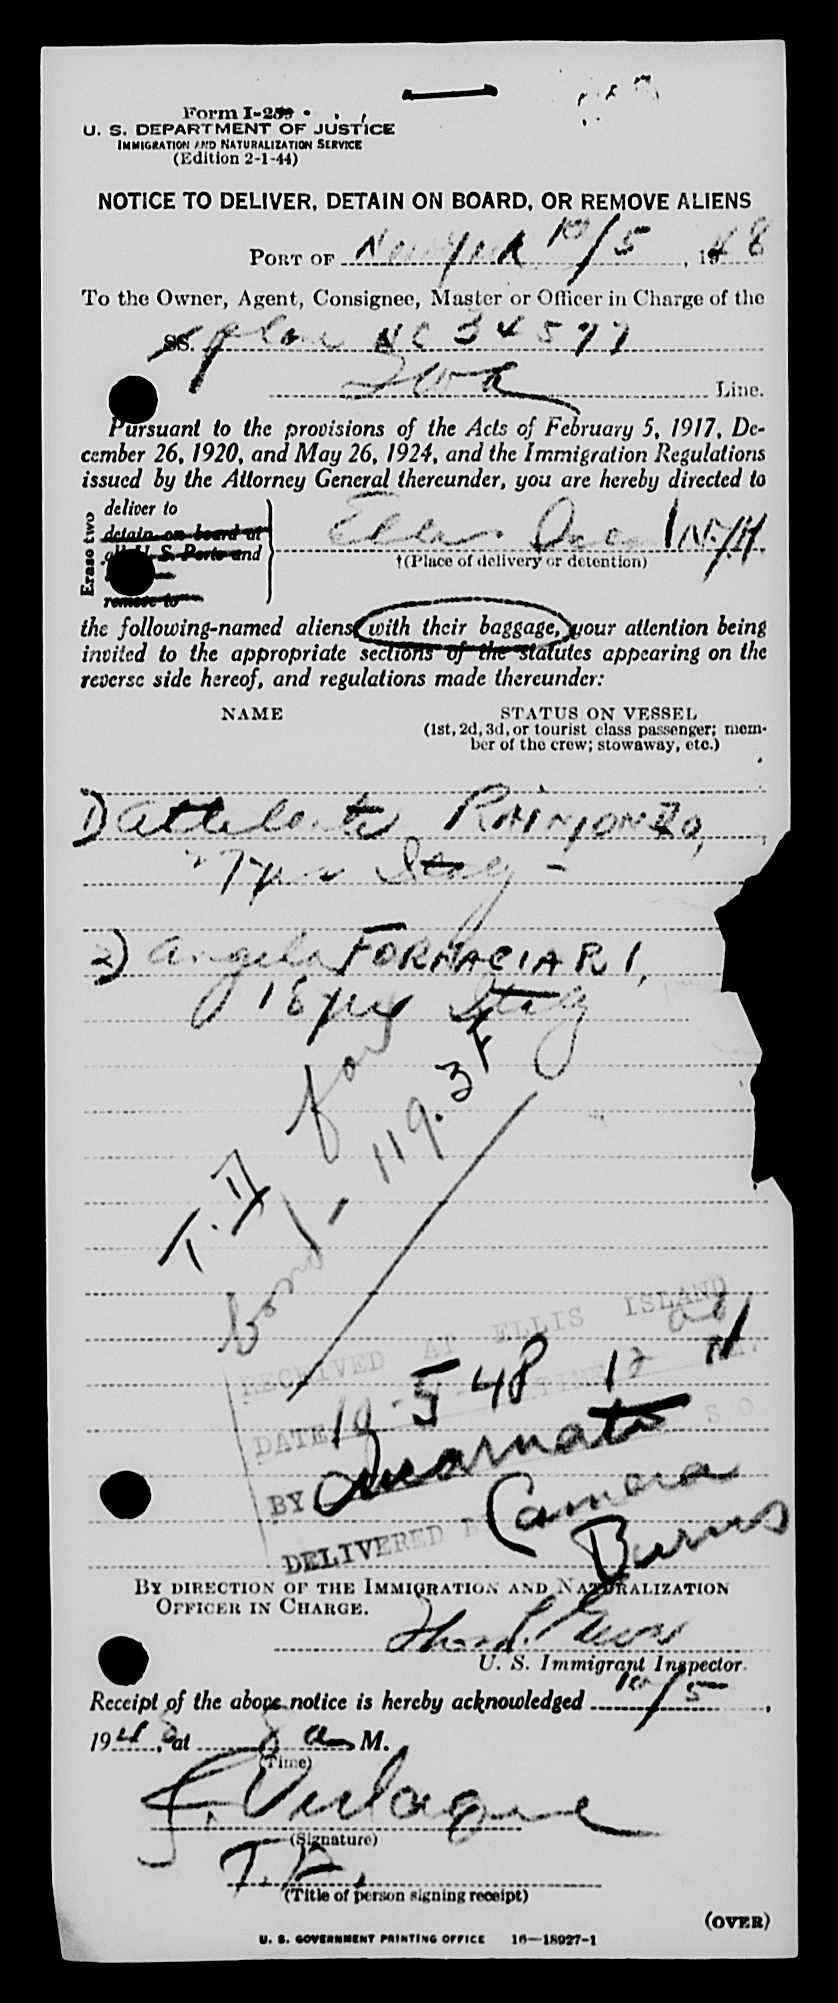 Form I-259
U. S. DEPARTMENT OF JUSTICE
IMMIGRATION AND NATURALIZATION SERVICE
(Edition 2-1-44)
NOTICE TO DELIVER, DETAIN ON BOARD, OR REMOVE ALIENS
PORT OF New York 10/5, 1948
To the Owner, Agent, Consignee, Master or Officer in Charge of the
SS. plane NC 34577
Twa Line.
Pursuant to the provisions of the Acts of February 5, 1917, De-
cember 26, 1920, and May 26, 1924, and the Immigration Regulations
issued by the Attorney General thereunder, you are hereby directed to
Erase two
deliver to
detain on board at
all U. S. Ports and
remove to
Ellis Isle N.Y.H.
†(Place of delivery or detention)
the following-named aliens with their baggage, your attention being
invited to the appropriate sections of the statutes appearing on the
reverse side hereof, and regulations made thereunder:
NAME STATUS ON VESSEL
(1st, 2d, 3d, or tourist class passenger; mem-
ber of the crew; stowaway, etc.)
1) RAIMONDO,
Italy -
2) Angela FORMACIARI,
18 yrs Italy
T. D for
bond - 119.3F
RECEIVED AT ELLIS ISLAND
DATE 10-5-48 TIME 12
BY
DELIVERED
Camera
Burns
BY DIRECTION OF THE IMMIGRATION AND NATURALIZATION
OFFICER IN CHARGE.
U. S. Immigrant Inspector.
Receipt of the above notice is hereby acknowledged 10/5,
1948, at 8 a M.
(Time)
(Signature)
T. A.
(Title of person signing receipt)
(OVER)
U. S. GOVERNMENT PRINTING OFFICE 16—18927-1